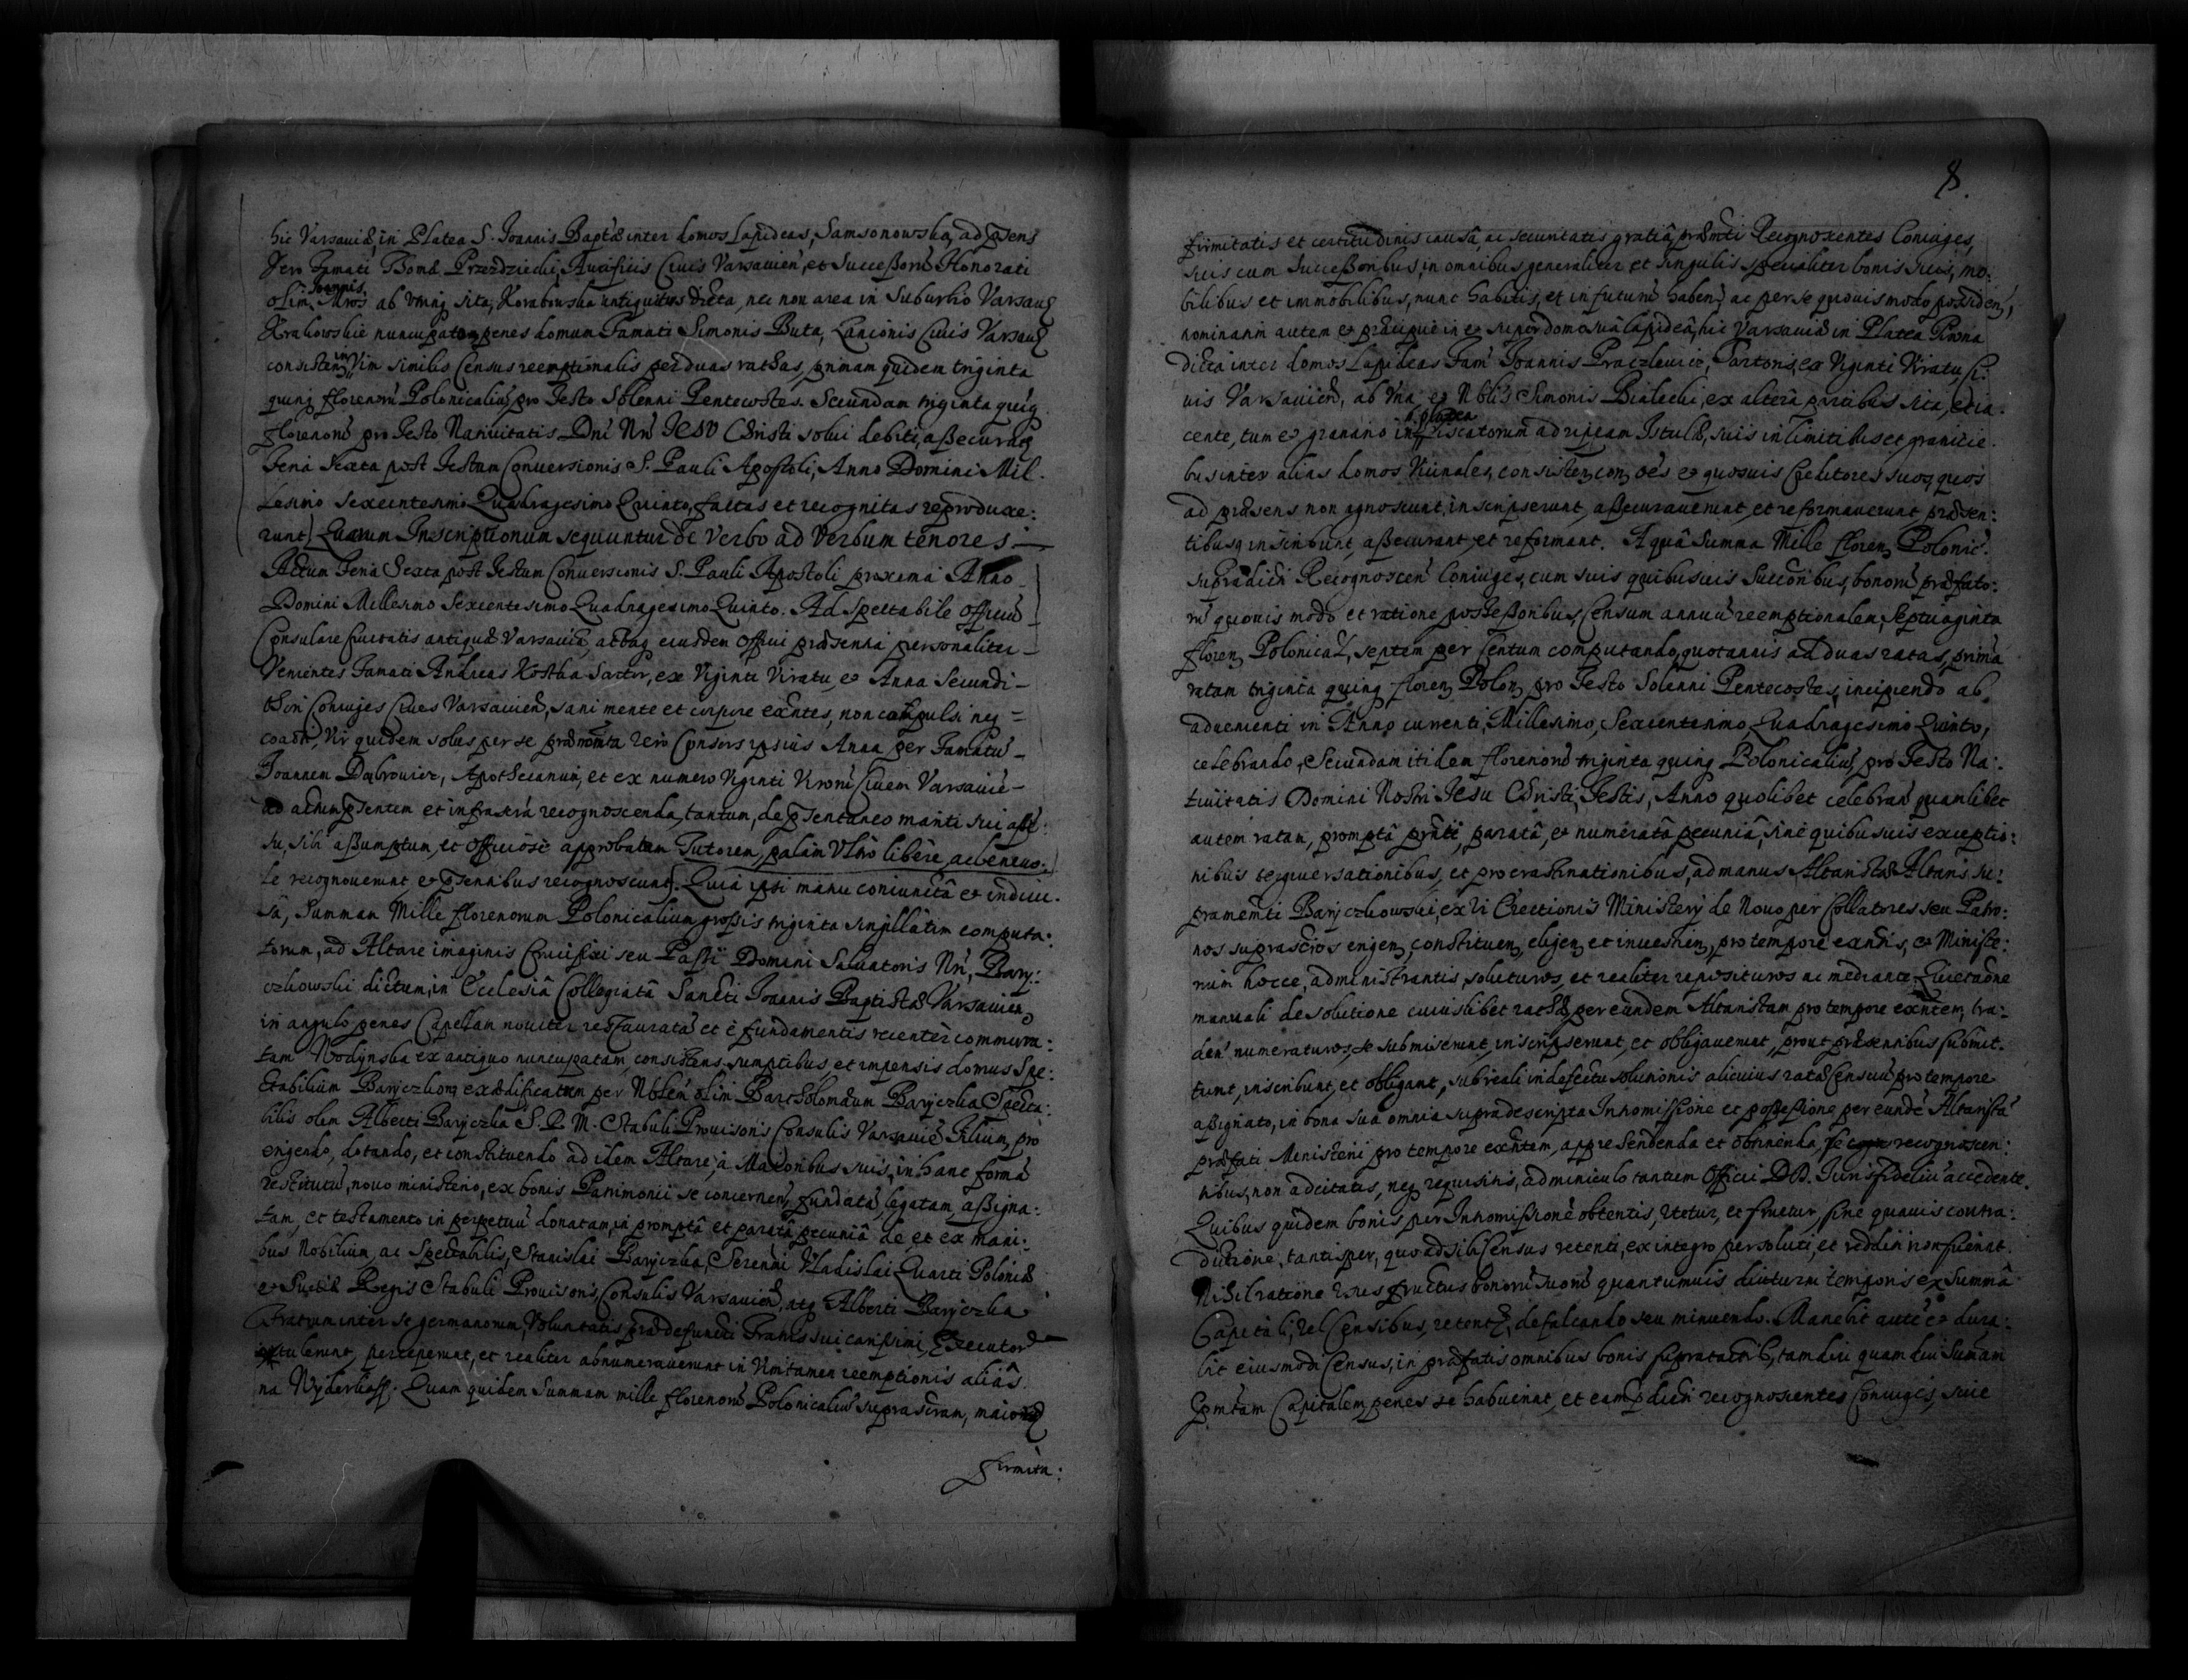 hic Varsaviæ, in Platea S. Joannis Bapt̃æ inter domos lapideas, Samsonowska, ad p̃sens
Vero Famati Thomæ Przezdziecki, Aurificis Civis Varsavieñ, et Successorũ Honorati
olim Joannis ab utrinq sita, Korabowska antiquitus dicta, nec non area in Suburbio Varsavᵉ
Krakowskie nuncupato penes domum Famati Simonis Buta, Lanionis Civis Varsavᵉ
consisten in Vim similis Census reemptionalis per duas rathas, primam quidem triginta
quinq florenorũ Polonicaliũ, pro Festo Solenni Pentecostes. Secundam triginta quiq
florenorũ pro Festo Nativitatis Dñi Nri JESU Christi solui debiti, assecuraᵉ
Feria Sexta post Festum Conversionis S. Pauli Apostoli, Anno Domini Mil:
lesimo sexcentesimo Quadragesimo Quinto, factas et recognitas reproduxe:
runt. Quarum Inscriptionum sequuntur de verbo ad verbum tenores
Actum Feria Sexta post Festum Conversionis S. Pauli Apostoli proxima Anno
Domini Millesimo Sexcentesimo Quadragesimo Quinto. Ad Spectabile Officiũ
Consulare Civitatis antiquæ Varsavieñ, actaq eiusdem Officii præsentia personaliter
Venientes Famati Andreas Kostka Sartor, ex Viginti Viratu, et Anna Secundi
Coniuges Cives Varsavieñ, sani mente et corpore exñtes, non compulsi neq
coacti, Vir quidem solus per se prænomta vero Consors ipsius Anna per Famatũ
Joannem Dąbrowicz, Apothecarium, et ex numero Viginti Virorũ Civem Varsavie
ad actum p̃sentem et infraxta recognoscenda, tantum, de p̃sentaneo mariti sui asse:
su, sibi assumptum, et officiose approbatum Tutorem, palam Ultro libere, ac benevo:
le recognoverunt et p̃sentibus recognoscunt. Quia ipsi manu coniuncta et indivi:
sa, Summam Mille florenorum Polonicalium grossis triginta singillatim computa:
torum, ad Altare imaginis Crucifixi seu Passi Domini Salvatoris Nri, Bary:
czkowski dictum, in Ecclesiâ Collegiatâ Sancti Joannis Baptistæ Varsavieñ
in angulo penes Capellam noviter restauratã et è fundamentis recenter commura:
tam Wodynska ex antiquo nuncupatam, consistens sumptibus, et impensis domus Spe:
ctabilium Baryczkonᵉ exædificatum per Nobilem olim Bartholomæum Baryczka Specta:
bilis olim Alberti Baryczka S. R. M. Stabuli Provisoris Consulis Varsavieñ Filium, pro
erigendo, dotando, et constituendo ad idem Altare, à Maioribus suis, in hanc formã
restitutũ, novo ministerio, ex bonis Patrimonii se concerneñ, fundatã, legatam, assigna:
tam, et testamento in perpetuũ donatam, in promptâ et paratâ pecuniâ de et ex mani:
bus Nobilium, ac Spectabilis, Stanislai Baryczka, Serenmi Vladislai Quarti Poloniæ
et Sueciæ Regis Stabuli Provisoris, Consulis Varsavieñ, atq Alberti Baryczka
Fratrum inter se germanorum, Voluntatis prædefuncti Fratris sui carissimi, Executorᵉ
tulerunt, perceperunt, et realiter abnumeraverunt in Vim tamen reemptionis alias
na Wyderkaff. Quam quidem Summam mille florenorũ Polonicaliũ suprascram, maioris
firmita:
8.
firmitatis et certitudinis causâ, ac securitatis gratiâ, præmti Recognoscentes Coniuges,
suis cum Successoribus, in omnibus generaliter et singulis specialiter bonis suis, mo:
bilibus et immobilibus, nunc habitis, et in futurũ habenᵈ, ac per se quovismodo possideñ,
nominatim autem et præcipue in et super domo suâ lapideâ, hic Varsaviæ in Platea Piwna
dicta inter domos lapideas Fam Joannis Praczlewicz, Sartoris, ex Viginti Viratu, Ci:
vis Varsavieñ, ab Una et Nobilis Simonis Bialecki, ex altera partibus sita, et ia:
cente, tum et granario in platea Piscatorum ad ripam Istulæ, suis in limitibus et granicie:
bus inter alias domos Vicinales, consisten con oẽs et quosvis Creditores suos, quos
ad præsens non agnoscunt, inscripserunt, assecuraverunt, et reformaverunt, præsen:
tibusq inscribunt, assecurant, et reformant. A quâ Summa Mille floreñ Polonic.
supradicti Recognosceñ Coniuges, cum suis quibusvis Succoribus, bonorũ præfato:
rũ quovis modo et ratione possessoribus, Censum annuũ reemptionalem, Septuaginta
floreñ Polonical, septem per Centum computando, quotannis ad duas ratas, primã
ratam triginta quinq floreñ Poloñ pro Festo Solenni Pentecostes, incipiendo ab
advenienti in Anno currenti, Millesimo, Sexcentesimo, Quadragesimo Quinto,
celebrando, Secundam itidem florenorũ triginta quinq Polonicaliũ, pro Festo Na:
tivitatis Domini Nostri Jesu Christi, Festis, Anno quolibet celebrari quamlibet
autem ratam, promptâ prñti, paratâ, et numeratâ pecuniâ, sine quibusvis exceptio:
nibus tergiversationibus, et procrastinationibus, ad manus Altaristæ Altaris su:
pramemti Baryczkowski, ex Vi Erectionis Ministery de Novo per Collatores seu Patro:
nos suprascros erigeñ, constitueñ, eligeñ et investieñ, pro tempore exñtis, et Ministe:
rium hocce, administrantis, soluturos, et realiter reposituros ac mediante Quietaone
manuali de solutione cuiuslibet rathæ per eundem Altaristam pro tempore exñtem, tra:
deñ numeraturos, se submiserunt, inscripserunt, et obligaverunt, prout præsentibus submit:
tunt, inscribunt, et obligant, sub reali in defectu solutionis alicuius ratæ Censuũ pro tempore
assignato, in bona sua omnia supradescripta Inromissione et possessione per eundẽ Altaristã
præfati Ministerii pro tempore exñtem, apprehendenda et obtinenda, recognoscen:
tibus, non adcitatis, neq requisitis, adminiculo tantum Officii DD. Jurisfideliũ accedente.
Quibus quidem bonis per Intromissionẽ obtentis, Utetur, et fruetur, sine quavis contra:
dictione, tantisper, quoad sibi Census retenti, ex integro persoluti, et redditi non fuerint.
Nihil ratione usus fructus bonorũ suorũ quantumvis diuturni temporis ex Summâ
Capitali, vel Censibus, retentᵉ, defalcando seu minuendo. Manebit autẽ et dura:
bit eiusmodi Census, in præfatis omnibus bonis supratactis, tamdiu quamdiu Sum̃am
p̃mtam Capitalem penes se habuerint, et eam p̃dicti recognoscentes Coniuges, sive